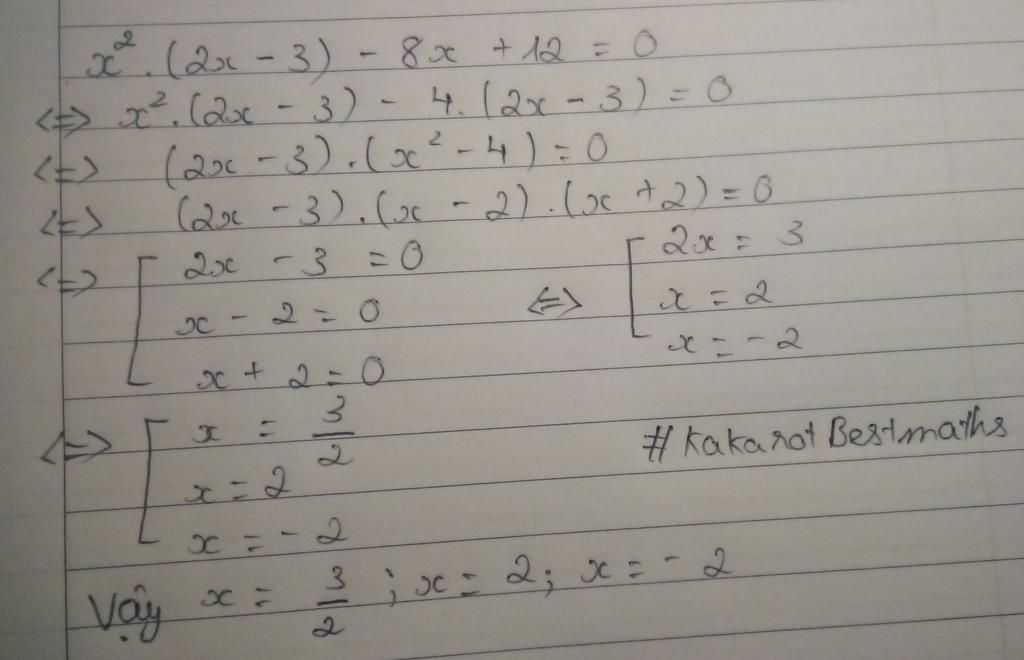 x². (2x - 3) - 8x + 12 = 0
<=> x².(2x - 3) - 4.(2x - 3) = 0
<=> (2x - 3).(x² - 4) = 0
<=> (2x - 3).(x - 2).(x + 2) = 0
<=> [ 2x - 3 = 0
x - 2 = 0
x + 2 = 0
<=> [ 2x = 3
x = 2
x = -2
<=> [ x = 3/2
x = 2
x = -2
#KakarotBestmaths
Vậy x = 3/2 ; x = 2; x = -2